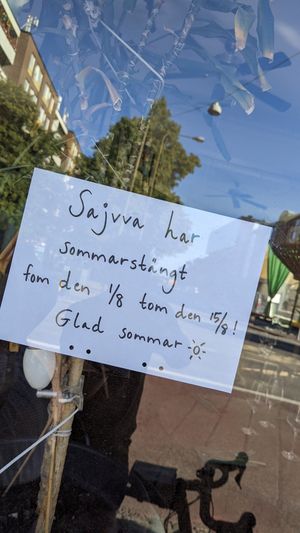 Sajvva har
sommarstängt
fom den 1/8 tom den 15/8!
Glad sommar